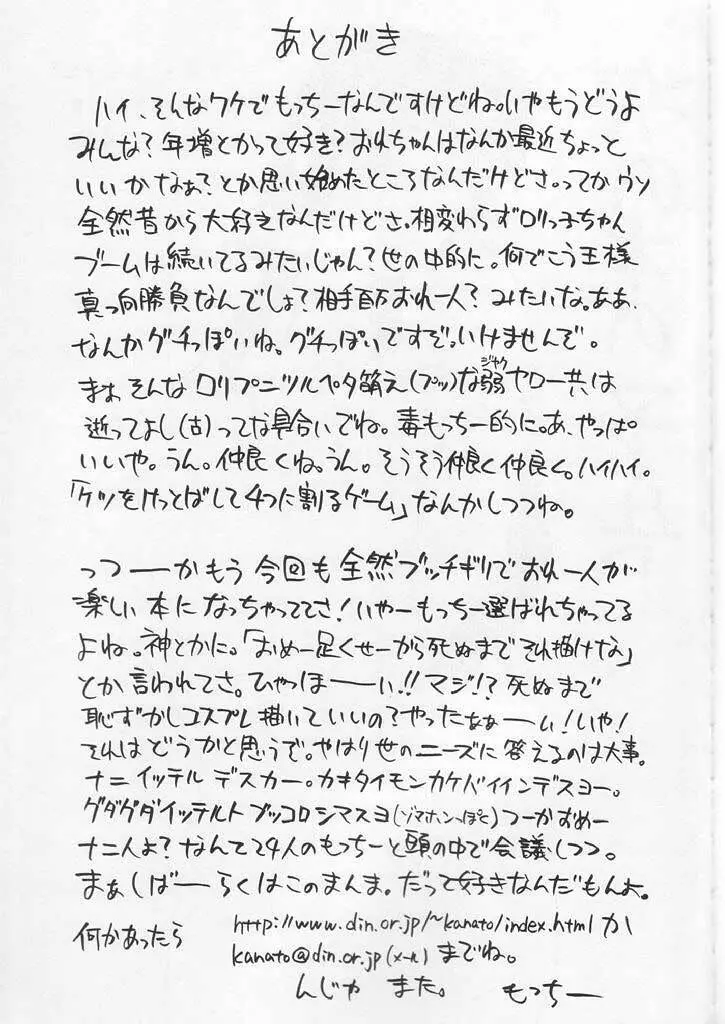 あとがき
ハイ、そんなワケでもっちーなんですけどね。いやもうどうよ
みんな?年増とかって好き?おれちゃんはなんか最近ちょっと
いいかなぁ?とか思い始めたところなんだけどさ。ってかウソ
全然昔から大好きなんだけどさ。相変わらずロリっ子ちゃん
ブームは続いてるみたいじゃん?世の中的に。何でこう王様
真っ向勝負なんでしょ?相手百万おれ一人?みたいな。ああ、
なんかグチっぽいね。グチっぽいですぞ。いけませんぞ。
まぁそんなロリプニツルペタ萌え(プッ)な弱ヤロー共は
ジャク
逝ってよし(古)ってな具合いでね。毒もっちー的に。あ、やっぱ
いいや。うん。仲良くね。うん。そうそう仲良く仲良く。ハイハイ。
「ケツをけっとばして4つに割るゲーム」なんかしつつね。
っつーーかもう今回も全然ブッチギリでおれ一人が
楽しい本になっちゃっててさ!いやーもっちー選ばれちゃってる
よね。神とかに。「おめー足くせーから死ぬまでそれ描けな」
とか言われてさ。ひゃっほーーい!!マジ!?死ぬまで
恥ずかしコスプレ描いていいの?やったなぁーーい!いや!
それはどうかと思うで。やはり世のニーズに答えるのは大事。
ナニイッテルデスカー。カキタイモンカケバイインデスヨー。
グダグダイッテルトブッコロシマスヨ(ゾマホンっぽく)つーかおめー
ナニ人よ?なんて24人のもっちーと頭の中で会議しつつ。
まぁしばーーらくはこのまんま。だって好きなんだもんよ。
何かあったら http://www.din.or.jp/~kanato/index.html か
kanato@din.or.jp(メール)までね。
んじゃ また。 もっちー